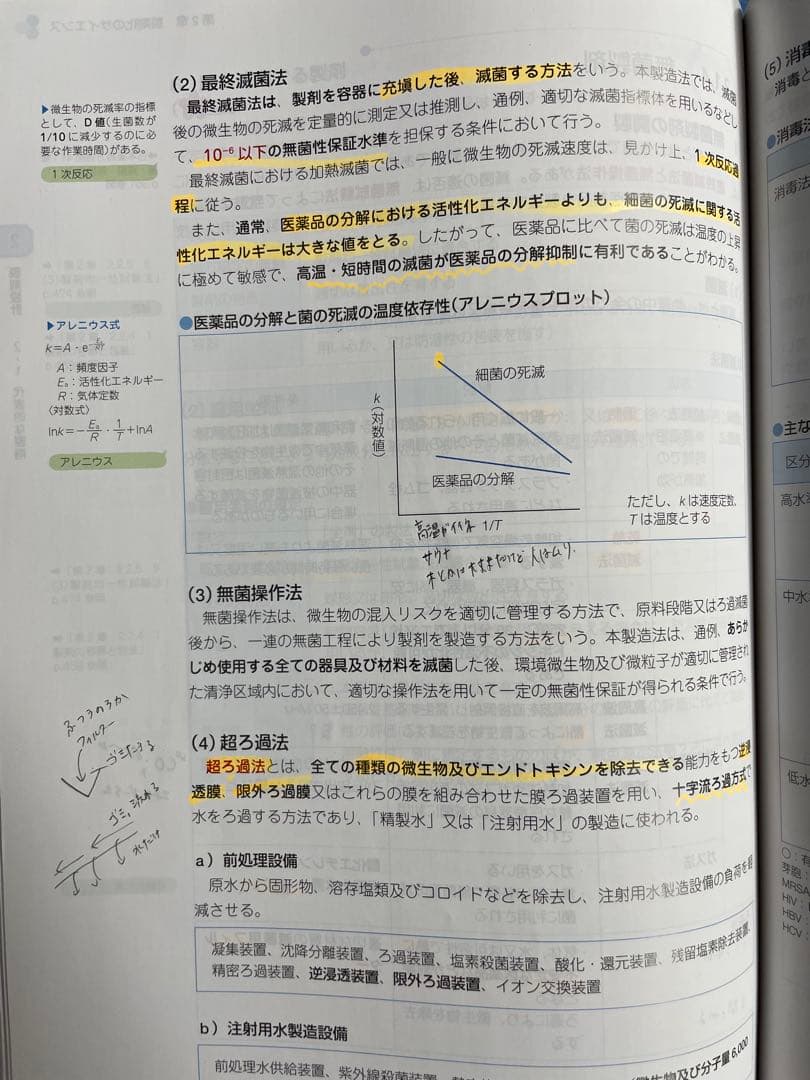 (2) 最終滅菌法
最終滅菌法は、製剤を容器に充塡した後、滅菌する方法をいう。本製造法では、滅菌
後の微生物の死滅を定量的に測定又は推測し、通例、適切な滅菌指標体を用いるなどし
て、10⁻⁶ 以下の無菌性保証水準を担保する条件において行う。
最終滅菌における加熱滅菌では、一般に微生物の死滅速度は、見かけ上、1 次反応過
程に従う。
また、通常、医薬品の分解における活性化エネルギーよりも、細菌の死滅に関する活
性化エネルギーは大きな値をとる。したがって、医薬品に比べて菌の死滅は温度の上昇
に極めて敏感で、高温・短時間の滅菌が医薬品の分解抑制に有利であることがわかる。
▶微生物の死滅率の指標
として、D 値(生菌数が
1/10 に減少するのに必
要な作業時間)がある。
1 次反応
▶アレニウス式
k=A・e
A:頻度因子
Eₐ:活性化エネルギー
R:気体定数
〈対数式〉
lnk=−Eₐ/R・1/T+lnA
アレニウス
●医薬品の分解と菌の死滅の温度依存性(アレニウスプロット)
k(対数値)
細菌の死滅
医薬品の分解
1/T
ただし、k は速度定数、
T は温度とする
サウナ
(3) 無菌操作法
無菌操作法は、微生物の混入リスクを適切に管理する方法で、原料段階又はろ過滅菌
後から、一連の無菌工程により製剤を製造する方法をいう。本製造法は、通例、あらか
じめ使用する全ての器具及び材料を滅菌した後、環境微生物及び微粒子が適切に管理され
た清浄区域内において、適切な操作法を用いて一定の無菌性保証が得られる条件で行う。
(4) 超ろ過法
超ろ過法とは、全ての種類の微生物及びエンドトキシンを除去できる能力をもつ逆浸
透膜、限外ろ過膜又はこれらの膜を組み合わせた膜ろ過装置を用い、十字流ろ過方式で
水をろ過する方法であり、「精製水」又は「注射用水」の製造に使われる。
ふつうのろか
フィルター
a) 前処理設備
原水から固形物、溶存塩類及びコロイドなどを除去し、注射用水製造設備の負荷を軽
減させる。
凝集装置、沈降分離装置、ろ過装置、塩素殺菌装置、酸化・還元装置、残留塩素除去装置、
精密ろ過装置、逆浸透装置、限外ろ過装置、イオン交換装置
b) 注射用水製造設備
前処理水供給装置、紫外線殺菌装置
微生物及び分子量 6,000
(5) 消毒
消毒と
●消毒法
消毒法
●主な
区分
高水準
中水
低水
○:有
芽胞:
MRSA
HIV:
HBV:
HCV: